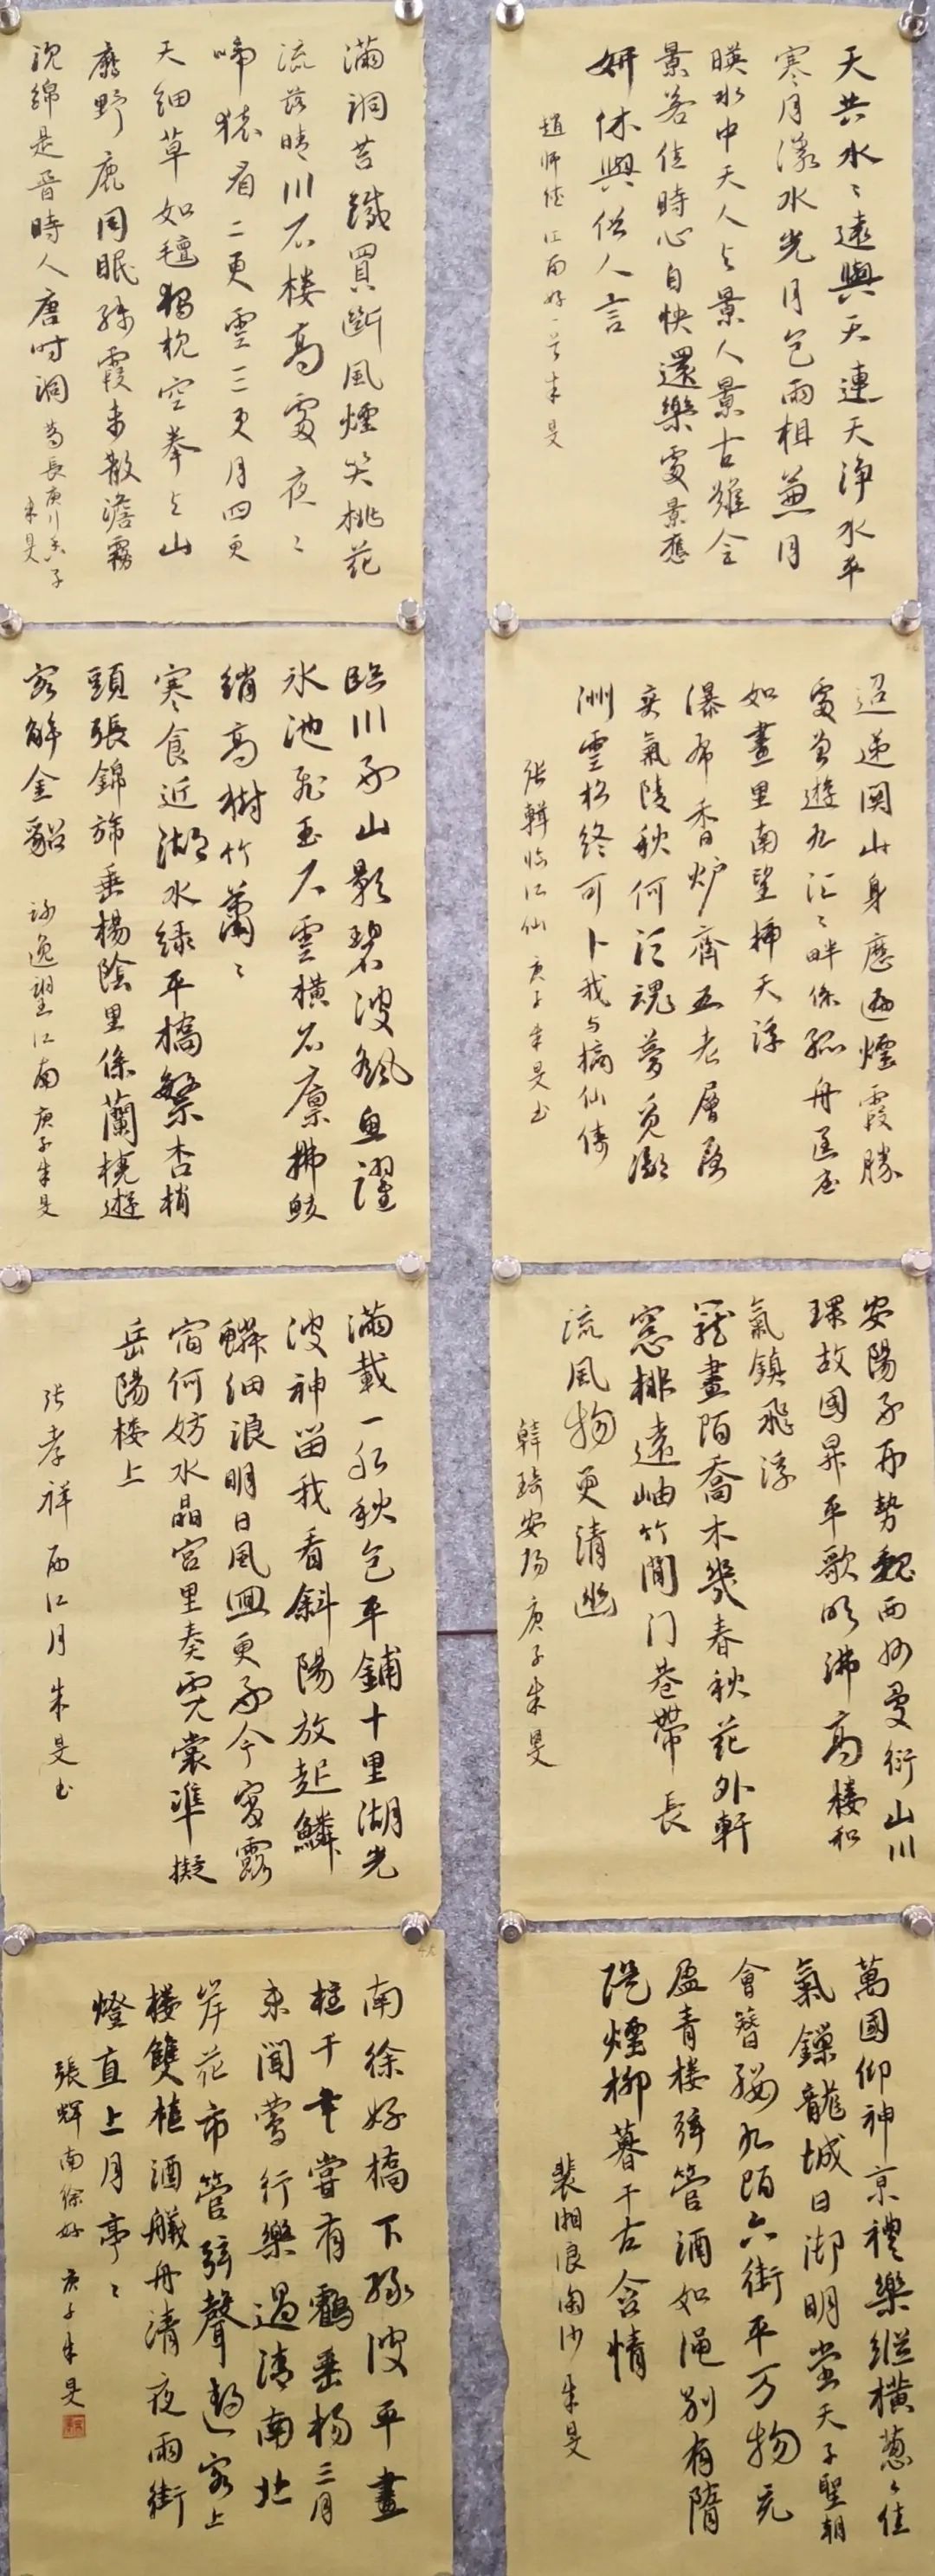 天共水水遠與天連天淨水平
寒月漾水光月色兩相兼月
暎水中天人與景人景古難全
景若佳時心自快還樂處景應
妍休與俗人言
趙師俠江南好一首朱旻
滿洞苔錢買斷風煙笑桃花
流落晴川石樓高處夜夜
啼猿看二更雲三更月四更
天細草如氊獨枕空拳與山
麋野鹿同眠殘霞未散澹霧
沈綿是晉時人唐時洞
葛長庚行香子
朱旻
迢遞關山身歷遍煙霞勝
處曾遊九江江畔係孤舟匡廬
如畫里南望插天浮
瀑布香炉齊五老層層
爽氣陵秋何須魂夢覓瀛
洲雲松終可卜我与謫仙儔
張輯臨江仙庚子朱旻书
臨川好山影碧波飜魚躍
冰池飛玉尺雲橫石廪拂鲛
綃高樹竹蕭蕭
寒食近湖水綠平橋繁杏梢
頭張錦旆垂楊陰里係蘭橈遊
客解金貂
謝逸望江南庚子朱旻
安陽好形勢魏西州曼衍山川
環故國昇平歌吹沸高樓和
氣鎮飛浮
籠畫陌喬木幾春秋花外軒
窓排遠岫竹間门巷帶長
流風物更清幽
韓琦安陽庚子朱旻
滿載一船秋色平鋪十里湖光
波神留我看斜陽放起鱗
鱗細浪明日風回更好今宵露
宿何妨水晶宮里奏霓裳準擬
岳陽樓上
张孝祥西江月朱旻书
萬國仰神京禮樂縱橫葱葱佳
氣鎖龍城日御明堂天子聖朝
會簪纓九陌六街平万物充
盈青樓弦管酒如澠別有隋
隄煙柳暮千古含情
裴湘浪淘沙朱旻
南徐好橋下綠波平畫
柱千年嘗有鶴垂杨三月
未聞鶯行樂過清南北
岸花市管弦聲邀客上
樓雙榼酒艤舟清夜兩街
燈直上月亭亭
張輝南徐好庚子朱旻